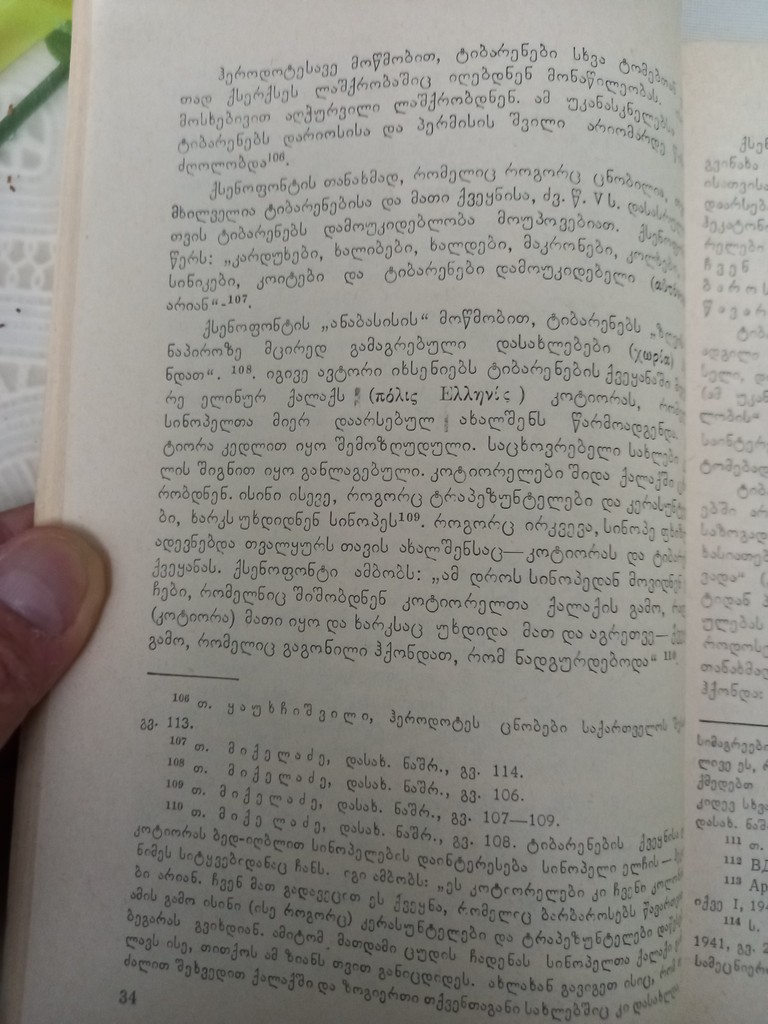 ჰეროდოტესავე მოწმობით, ტიბარენები სხვა ტომებთან
თად ქსერქსეს ლაშქრობაშიც იღებდნენ მონაწილეობას.
მოსხებივით აღჭურვილი ლაშქრობდნენ. ამ უკანასკნელებსა
ტიბარენებს დარიოსისა და პერმისის შვილი არიომარდე
ძღოლობდა¹⁰⁶.
ქსენოფონტის თანახმად, რომელიც როგორც ცნობილია,
მხილველია ტიბარენებისა და მათი ქვეყნისა, ძვ. წ. V ს.
თვის ტიბარენებს დამოუკიდებლობა მოუპოვებიათ.
წერს: „კარდუხები, ხალიბები, ხალდები, მაკრონები, კოლხები,
სინიკები, კოიტები და ტიბარენები დამოუკიდებელი
არიან“.¹⁰⁷.
ქსენოფონტის „ანაბასისის“ მოწმობით, ტიბარენებს
ნაპიროზე მცირედ გამაგრებული დასახლებები (χωρία)
ნდათ“. ¹⁰⁸. იგივე ავტორი იხსენიებს ტიბარენების ქვეყანაში
რე ელინურ ქალაქს (πόλις Ελληνίς) კოტიორას,
სინოპელთა მიერ დაარსებულ ახალშენს წარმოადგენდა.
ტიორა კედლით იყო შემოზღუდული. საცხოვრებელი სახლები
ლის შიგნით იყო განლაგებული. კოტიორელები შიდა ქალაქში
რობდნენ. ისინი ისევე, როგორც ტრაპეზუნტელები და
ბი, ხარკს უხდიდნენ სინოპეს¹⁰⁹. როგორც ირკვევა, სინოპე
ადევნებდა თვალყურს თავის ახალშენსაც—კოტიორას და
ქვეყანას. ქსენოფონტი ამბობს: „ამ დროს სინოპედან
ჩები, რომელნიც შიშობდნენ კოტიორელთა ქალაქის გამო,
(კოტიორა) მათი იყო და ხარკსაც უხდიდა მათ და აგრეთვე—
გამო, რომელიც გაგონილი ჰქონდათ, რომ ნადგურდებოდა“ ¹¹⁰.
¹⁰⁶ თ. ყაუხჩიშვილი, ჰეროდოტეს ცნობები საქართველოს
გვ. 113.
¹⁰⁷ თ. მიქელაძე, დასახ. ნაშრ., გვ. 114.
¹⁰⁸ თ. მიქელაძე, დასახ. ნაშრ., გვ. 106.
¹⁰⁹ თ. მიქელაძე, დასახ. ნაშრ., გვ. 107—109.
¹¹⁰ თ. მიქელაძე, დასახ. ნაშრ., გვ. 108. ტიბარენების
კოტიორას ბედ-იღბლით სინოპელების დაინტერესება სინოპელი ელჩის—
ნიმეს სიტყვებიდანაც ჩანს. იგი ამბობს: „ეს კოტიორელები კი ჩვენი
ბი არიან. ჩვენ მათ გადავეცით ეს ქვეყნა, რომელიც ბარბაროსებს
ამის გამო ისინი (ისე როგორც) კერასუნტელები და ტრაპეზუნტელები
ბეგარას გვიხდიან. ამიტომ მათდამი ცუდის ჩადენას სინოპელთა ქალაქი
ლავს ისე, თითქოს ამ ზიანს თვით განიცდიდეს. ახლახან გავიგეთ ისიც,
ძალით შეხვედით ქალაქში და ზოგიერთი თქვენთაგანი სახლებშიც კი
34
გვინახა
ისათვისა
დაარსებ
ჩვენ
ტიბ
ადგილი
ლობის“
ტიბ
ვადა“
ტიდან
ულებას
თანახმად
ჰქონდა:
სიმაგრეები
ლივე ეს,
ქმედებთ
კიდევ სხვა
დასახ. ნაშ
¹¹¹ თ.
¹¹² ВД
¹¹³ Ар
იქვე I, 19
¹¹⁴ ს.
1941, გვ. 2
სამეცნიერ